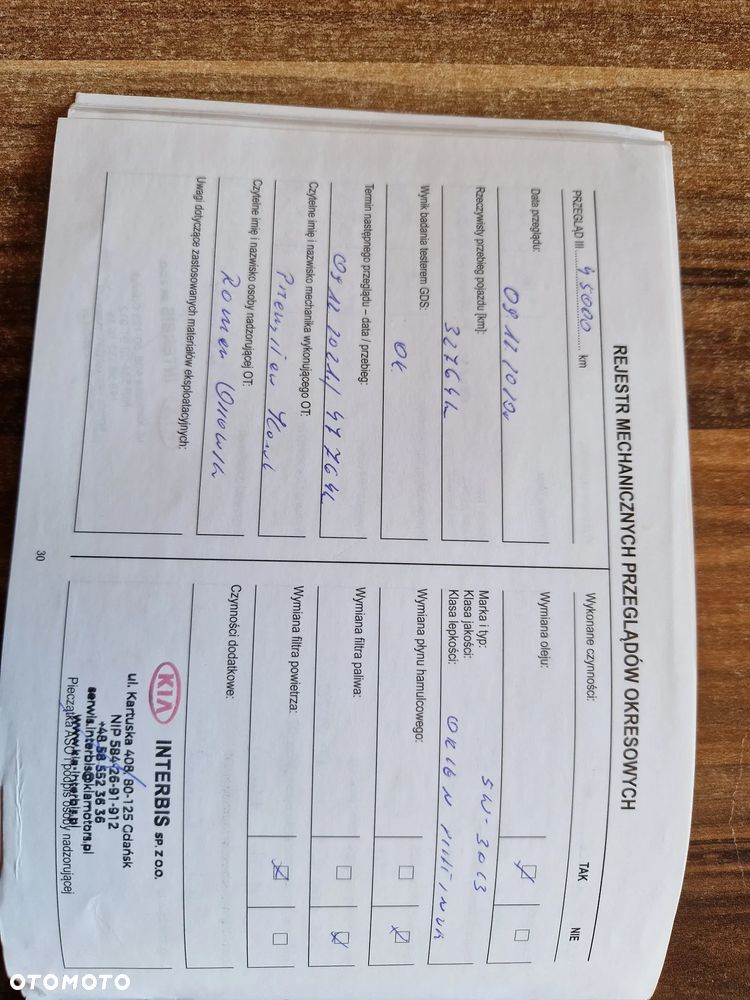 REJESTR MECHANICZNYCH PRZEGLĄDÓW OKRESOWYCH
PRZEGLĄD III 45000 km
Data przeglądu:
Rzeczywisty przebieg pojazdu [km]:
32764
Wynik badania testerem GDS:
OK
Termin następnego przeglądu – data / przebieg:
Czytelne imię i nazwisko mechanika wykonującego OT:
Czytelne imię i nazwisko osoby nadzorującej OT:
Roman
Uwagi dotyczące zastosowanych materiałów eksploatacyjnych:
30
Wykonane czynności: TAK NIE
Wymiana oleju:
Marka i typ:
Klasa jakości:
Klasa lepkości:
Wymiana płynu hamulcowego:
Wymiana filtra paliwa:
Wymiana filtra powietrza:
Czynności dodatkowe:
KIA INTERBIS SP. Z O.O.
ul. Kartuska 408/80-125 Gdańsk
NIP 584-26-91-912
+48 58 552 36 36
serwis.interbis@kiamotors.pl
www.kia-interbis.pl
Pieczątka ASO i podpis osoby nadzorującej
OTOMOTO